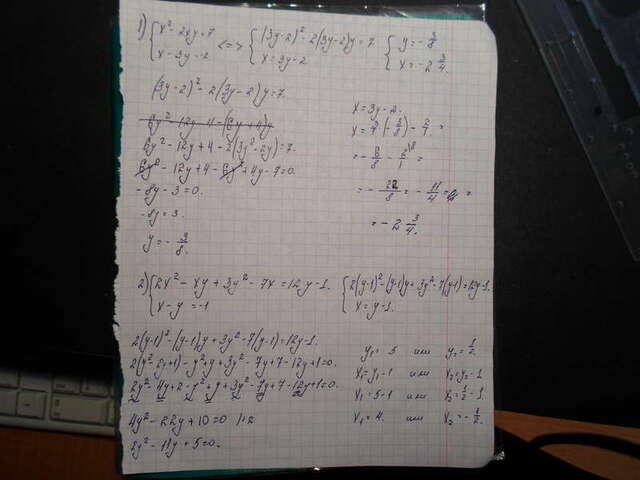 1) { x² - 2xy = 7 <=> { (3y-2)² - 2(3y-2)y = 7 { y = -3/8
x - 3y = -2 x = 3y-2 x = -2 3/4.
(3y-2)² - 2(3y-2)y = 7.
6y² - 12y + 4 - 2(3y² - 2y) = 7.
6y² - 12y + 4 - 6y² + 4y - 7 = 0.
-8y - 3 = 0.
-8y = 3.
y = -3/8.
x = 3y - 2.
= -22/8 = -11/4 =
= -2 3/4.
2) { 2x² - xy + 3y² - 7x = 12y - 1. { 2(y-1)² - (y-1)y + 3y² - 7(y-1) = 12y-1.
x - y = -1 x = y-1.
2(y-1)² - (y-1)y + 3y² - 7(y-1) = 12y-1.
2(y² - 2y + 1) - y² + y + 3y² - 7y + 7 - 12y + 1 = 0.
2y² - 4y + 2 - y² + y + 3y² - 7y + 7 - 12y + 1 = 0.
4y² - 22y + 10 = 0 |÷2
2y² - 11y + 5 = 0.
y₁ = 5 или y₂ = 1/2.
x₁ = y₁ - 1 или x₂ = y₂ - 1
x₁ = 5 - 1 или x₂ = 1/2 - 1.
x₁ = 4. или x₂ = -1/2.